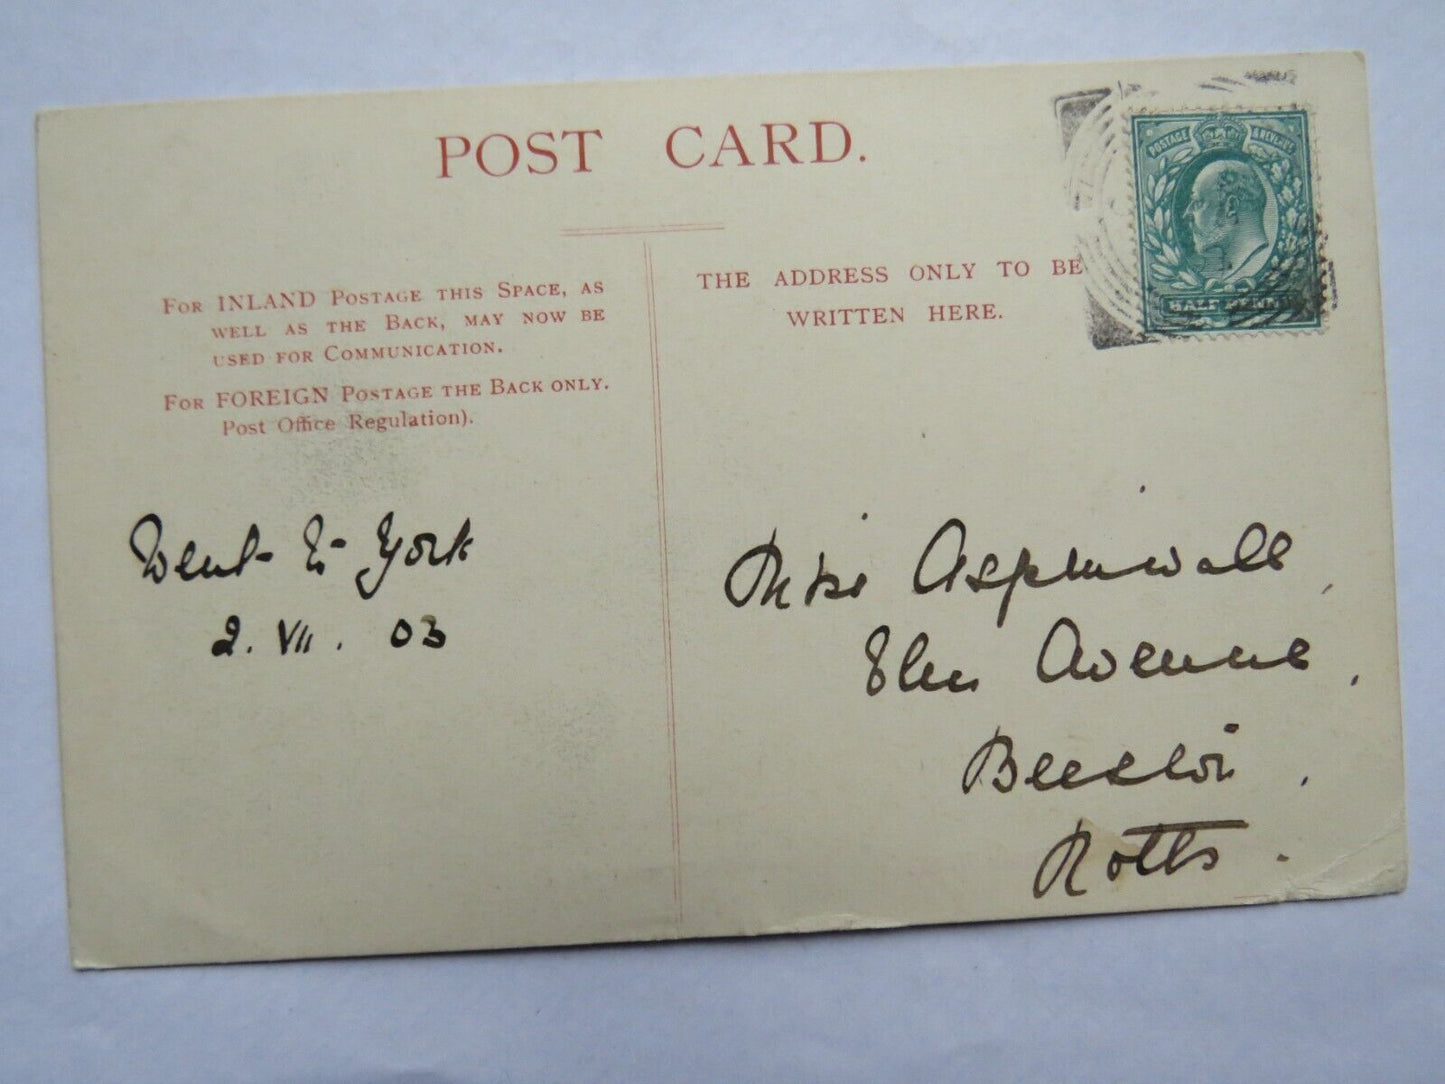 POST CARD.
FOR INLAND POSTAGE THIS SPACE, AS
WELL AS THE BACK, MAY NOW BE
USED FOR COMMUNICATION.
FOR FOREIGN POSTAGE THE BACK ONLY.
Post Office Regulation).
Went to York
2. VII. 03
THE ADDRESS ONLY TO BE
WRITTEN HERE.
POSTAGE & REVENUE
HALF PENNY
Miss Aspinwall,
Glen Avenue,
Beeston,
Notts.